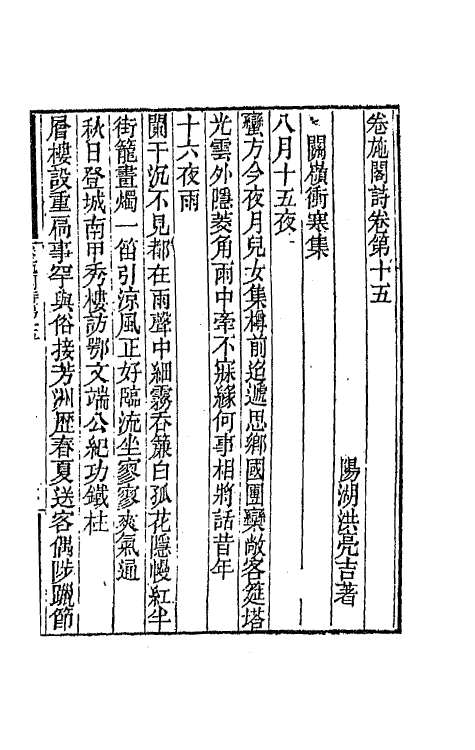 卷施閣詩卷第十五
陽湖洪亮吉著
關嶺衝寒集
八月十五夜
蠻方今夜月兒女集樽前迢遞思鄉國團欒敞客筵塔
光雲外隱菱角雨中牽不寐緣何事相將話昔年
十六夜雨
闌干沉不見都在雨聲中細霧吞簾白孤花隱幔紅半
街籠畫燭一笛引涼風正好臨流坐寥寥爽氣通
秋日登城南甲秀樓訪鄂文端公紀功鐵柱
層樓設重扃事罕與俗接芳洲歷春夏送客偶陟躐節